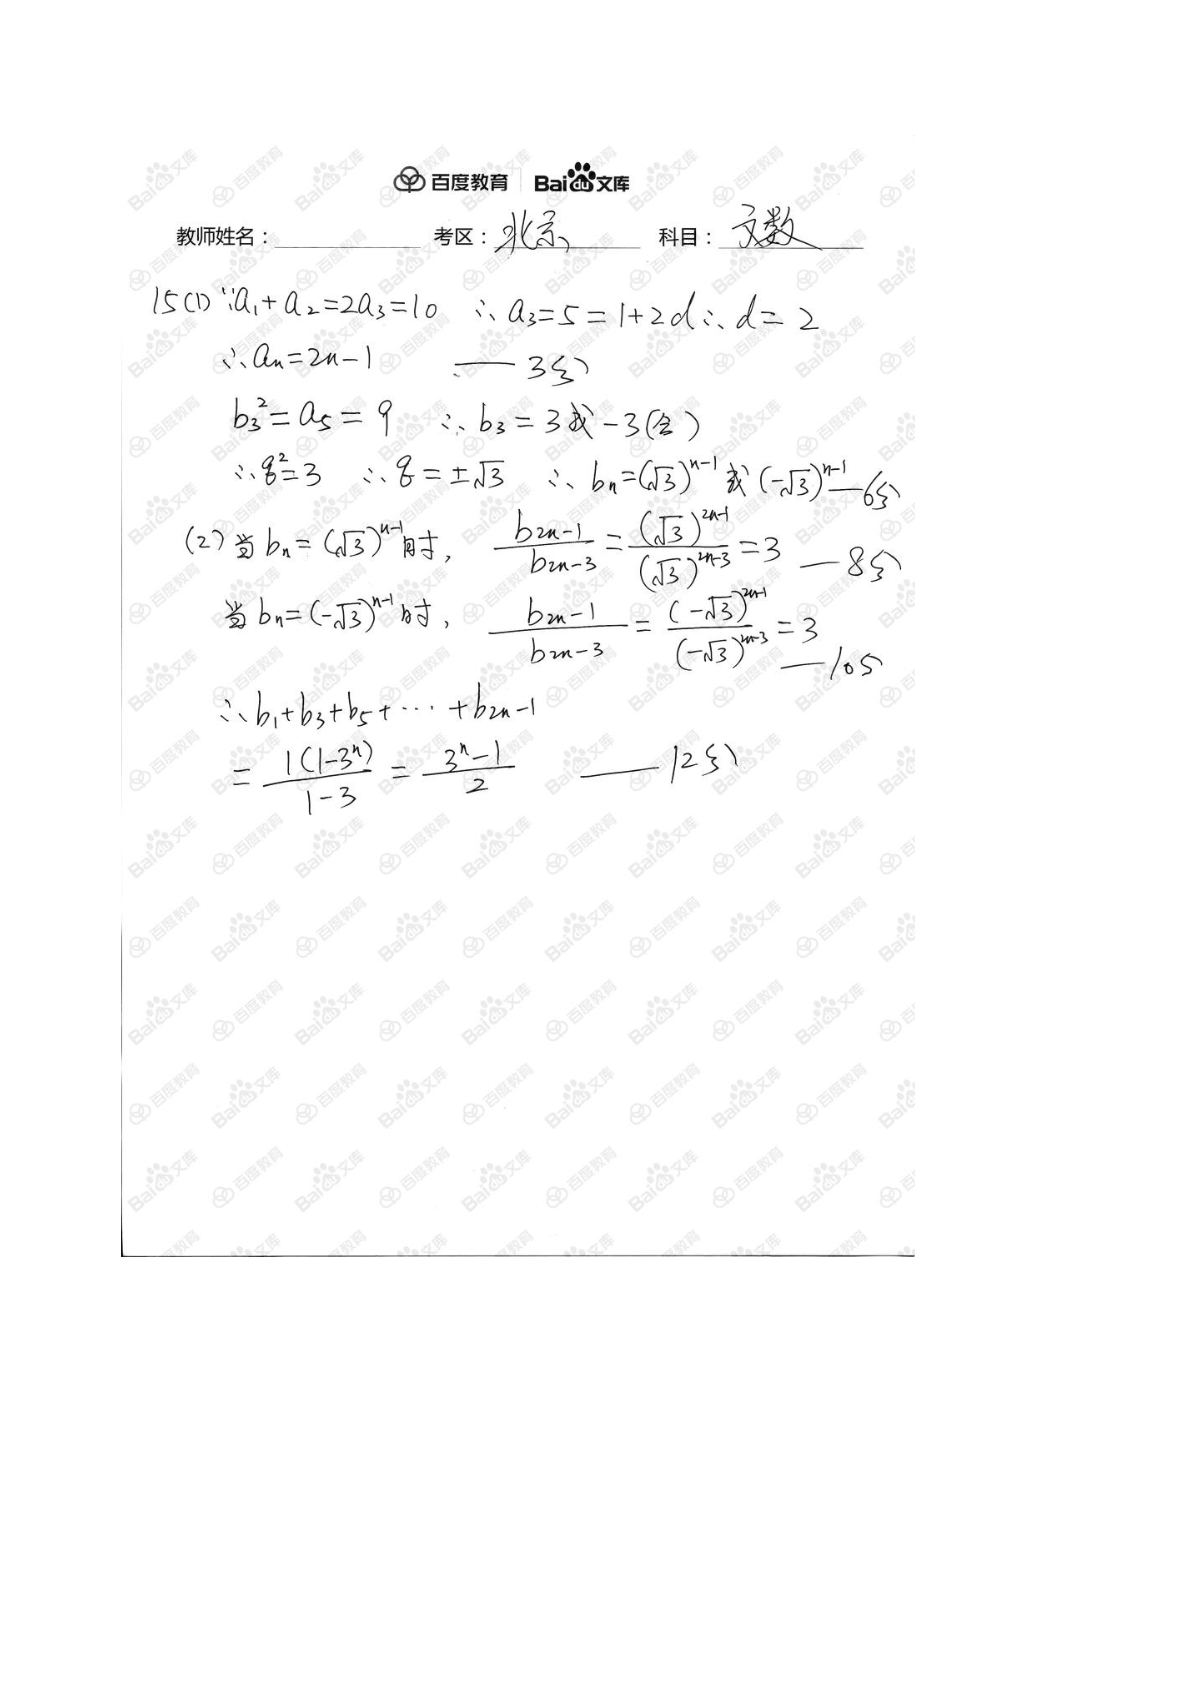 百度教育 Bai文库
教师姓名： 考区：北京 科目：文数
15(1) ∵a₁+a₂=2a₃=10 ∴a₃=5=1+2d ∴d=2
∴aₙ=2n-1 —3分
b₃²=a₅=9 ∴b₃=3或-3(舍)
∴q²=3 ∴q=±√3 ∴bₙ=(√3)ⁿ⁻¹或(-√3)ⁿ⁻¹ —6分
(2)当bₙ=(√3)ⁿ⁻¹时, b₂ₙ₋₁/b₂ₙ₋₃=(√3)²ⁿ⁻¹/(√3)²ⁿ⁻³=3 —8分
当bₙ=(-√3)ⁿ⁻¹时, b₂ₙ₋₁/b₂ₙ₋₃=(-√3)²ⁿ⁻¹/(-√3)²ⁿ⁻³=3
—10分
∴b₁+b₃+b₅+…+b₂ₙ₋₁
=1(1-3ⁿ)/1-3=3ⁿ-1/2 —12分